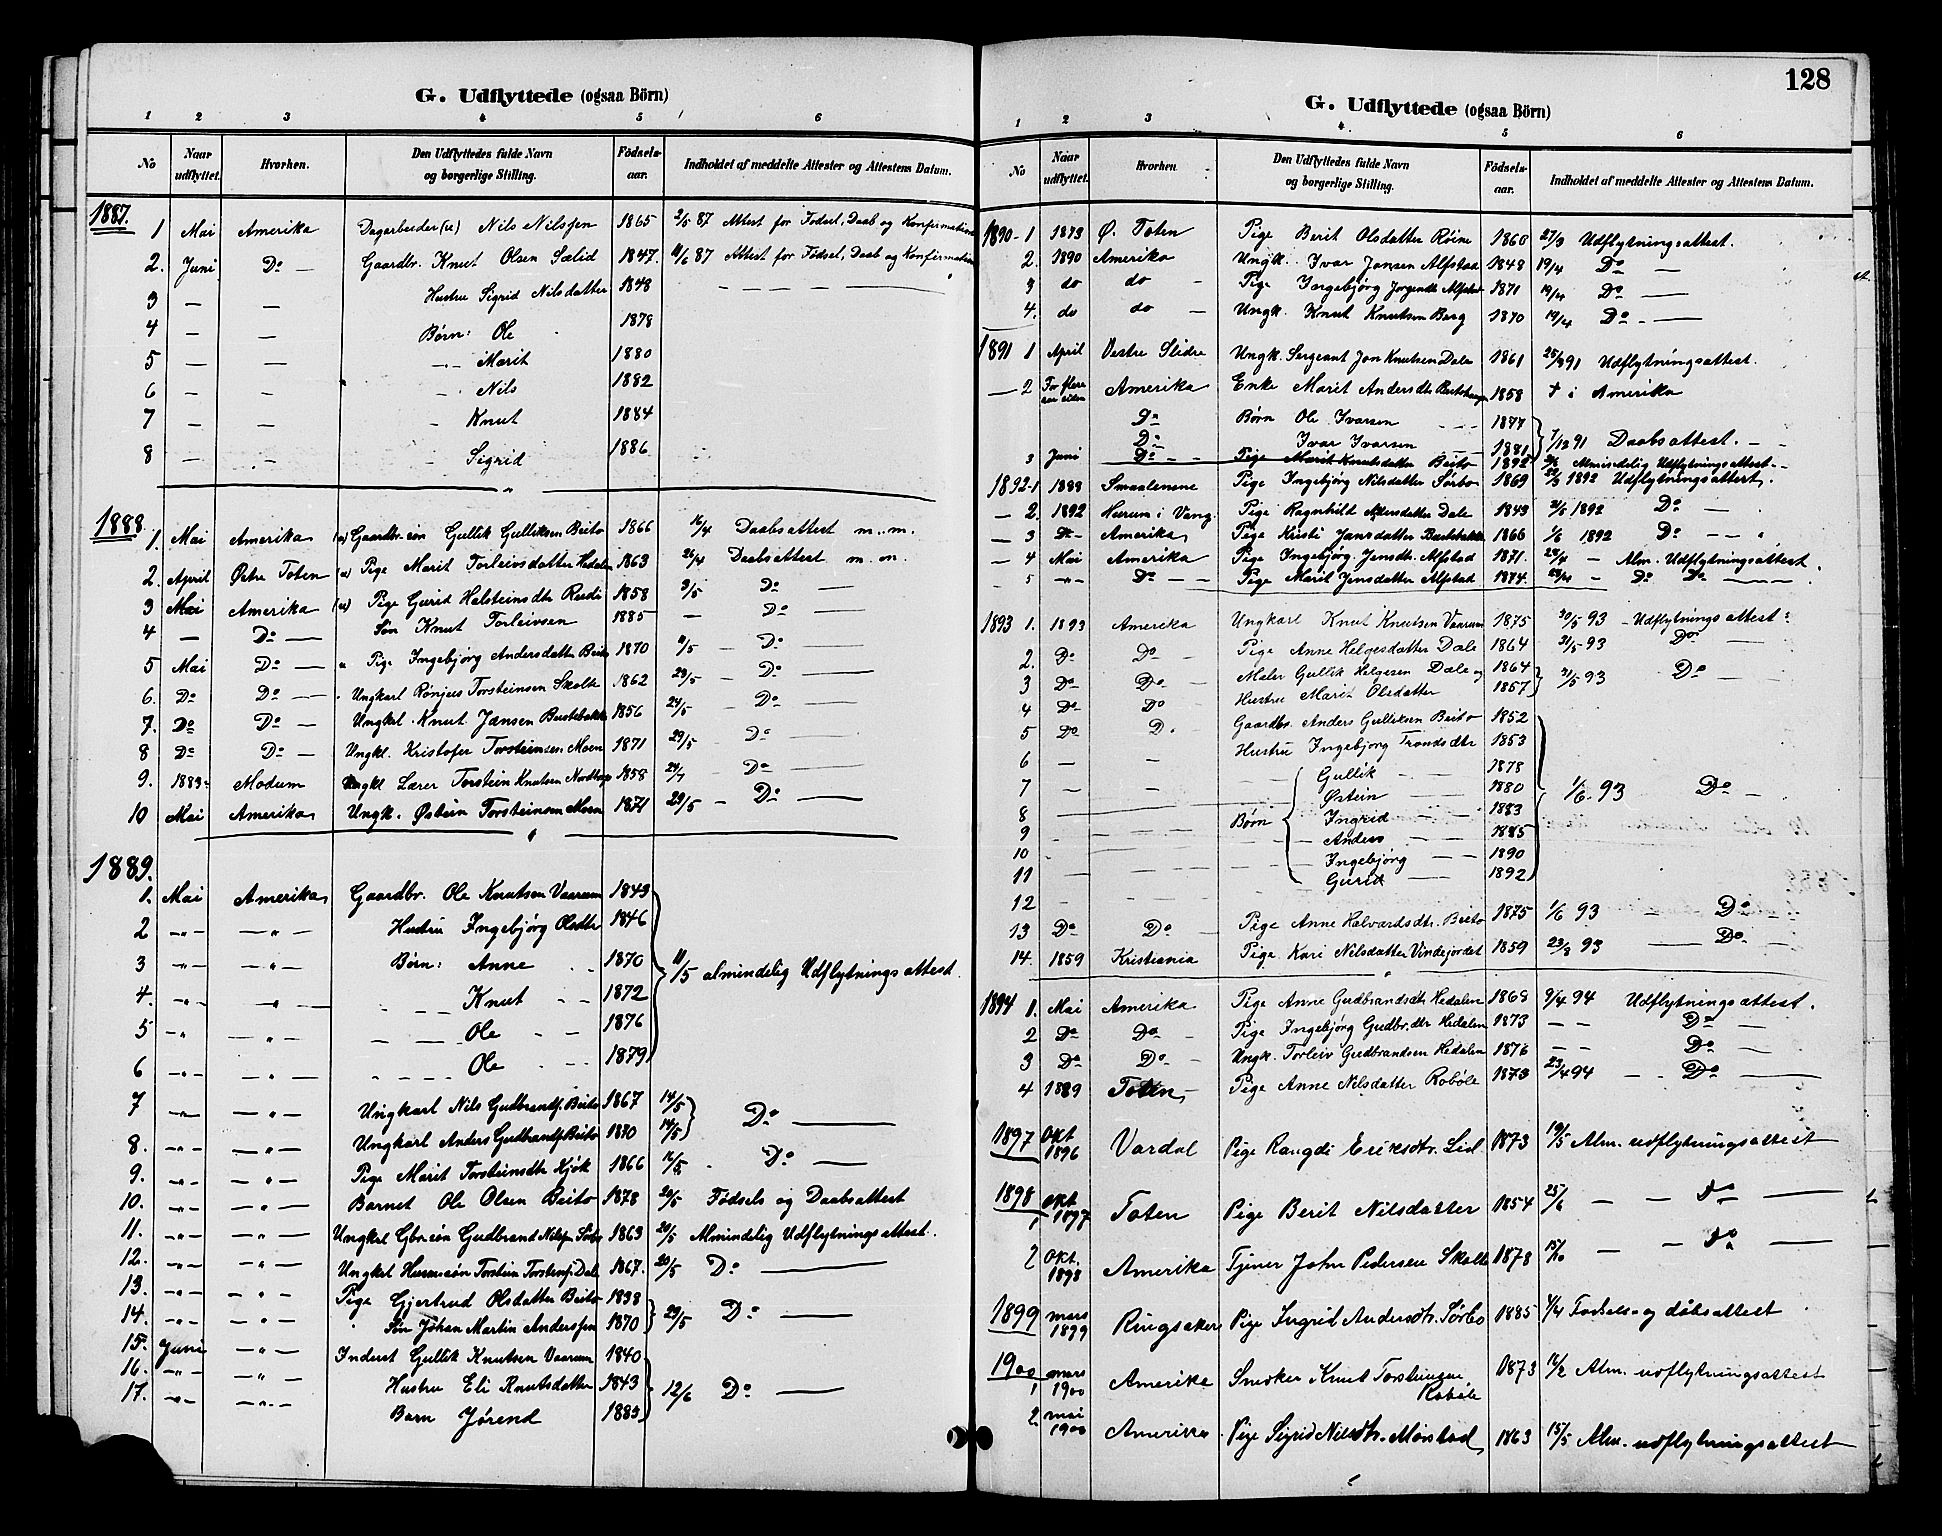 G. Udflyttede (ogsaa Börn)
1 2 3 4 5 6
No Naar udflyttet. Hvorhen. Den Udflyttedes fulde Navn og borgerlige Stilling. Födsels-aar. Indholdet af meddelte Attester og Attestens Datum.
1887.
1 Mai Amerika Dagarbeider Nils Nilssen 1865 2/5 87 Attest for Fødsel, Daab og Konfirmation
2. Juni Do — Gaardbr. Knut Olsen Sælid 1847. 11/6 87 Attest for Fødsel, Daab og Konfirmation
3 — — Hustru Sigrid Nilsdatter 1848 — — — — —
4 — — Børn: Ole 1878
5 — — Marit 1880
6 — — Nils 1882
7 — — Knut 1884
8 — — Sigrid 1886
1888
1. Mai Amerika Gaardbr. søn Gullik Gulliksen Beito 1866 16/4 Daabsattest m. m.
2. April Østre Toten Pige Marit Torleivsdatter Hedalen 1863 26/4 Daabsattest m. m.
3 Mai Amerika Pige Gurid Halsteinsdtr Rudi 1858 3/5 Do —
4 — Do — Søn Knut Torleivsen 1885 — — Do —
5 Mai Do — Pige Ingebjørg Andersdatter Beito 1870 11/5 — Do —
6. Do Do — Ungkarl Rønjus Torsteinsen Skolte 1862 23/5 — Do —
7. Do Do — Ungkl. Knut Jansen Bustebakke 1856 24/5 — Do —
8 Do Do — Ungkl. Kristofer Torsteinsen Moen 1871 29/5 — Do —
9. 1883 Modum Ungkl Lærer Torstein Knutsen Nordthorp 1858 24/7 — Do —
10 Mai Amerika Ungk. Østein Torsteinsen Moen 1871 29/5 — Do —
1889.
1. Mai Amerika Gaardbr. Ole Knutsen Vaarum 1849
2 -"- —"— Hustru Ingebjørg Olsdtr 1846
3 -"- —"— Børn: Anne 1870 11/5 almindelig Udflytningsattest.
4. -"- —"— Knut 1872
5 -"- —"— Ole 1876
6 -"- —"— Ole 1879
7 -"- —"— Ungkarl Nils Gudbrands. Beito 1867 14/5 Do —
8. -"- —"— Ungkarl Anders Gudbrands. Beito 1870 14/5
9. -"- —"— Pige Marit Torsteinsdtr Kjøk 1866 16/5 Do —
10. -"- —"— Barnet Ole Olsen Beito 1878 20/5 Fødsels og Daabsattest
11. -"- —"— Ungkl Gbr. søn Gudbrand Nilsen Sørbo 1863 20/5 Almindelig Udflytningsattest.
12. -"- —"— Ungkl Husm. søn Torstein Torstens. Dale 1867. 20/5 Do —
13. -"- —"— Pige Gjertrud Olsdatter Beito 1838 29/5 Do —
14. -"- —"— Søn Johan Martin Anderssen 1870
15. Juni —"— Inderst Gullik Knutsen Vaarum 1840
16. -"- —"— Hustru Eli Knutsdatter 1843 12/6 Do —
17. -"- —"— Barn Jørend 1883
128
G. Udflyttede (ogsaa Börn)
1 2 3 4 5 6
No Naar udflyttet. Hvorhen. Den Udflyttedes fulde Navn og borgerlige Stilling. Födsels-aar. Indholdet af meddelte Attester og Attestens Datum.
1890 - 1 1873 Ø. Toten Pige Berit Olsdatter Røine 1860 27/3 Udflytningsattest.
2. 1890 Amerika Ungk. Ivar Jansen Alfstad 1848 19/4 Do —
3 do do — Pige Ingebjørg Jorgendtr Alfstad 1871 19/4 Do —
4. do do — Ungk. Knut Knutsen Berg 1870 19/4 Do —
1891 1 April Vestre Slidre Ungk. Sergeant Jon Knutsen Dale 1861 25/3 91 Udflytningsattest.
— 2 For flere aar siden Amerika Enke Marit Andersdtr 1858 † i Amerika
Do Børn Ole Ivarsen 1877 7/12 91 Daabsattest.
Do Ivar Ivarsen 1881
3 Juni Do Pige Marit Knutsdatter Beito 1892 Almindelig Udflytningsattest
1892. 1 1888 Smaalenene Pige Ingebjørg Nilsdatter Sørbo 1869 1892 Udflytningsattest.
— 2. 1892 Høerum i Vang. Pige Ragnhild Dale 1843 21/5 1892 Do —
— 3 Do Amerika Pige Kristi Jansdatter Bustebakke 1866 1/6 1892 Do —
— 4 Mai Amerika Pige Ingebjørg. Jensdtr. Alfstad 1871. 29/4 — Alm. Udflytningsattest.
5 -"- Do — Pige Marit Jensdatter Alfstad 1874. 29/4 — Do Do —
1893 1. 1893 Amerika Ungkarl Knut Knutsen Vaarum 1875 30/5 93 — Udflytningsattest.
2. Do Do — Pige Anne Helgesdatter Dale 1864 31/5 93 Do
3 Do Do — Maler Gullik Helgesen Dale og 1864 31/5 93 Do —
4 Do Do Hustru Marit Olsdatter 1857
5 Do D. Gaardbr. Anders Gulliksen Beito 1852
6 — — Hustru Ingebjorg Trondsdtr 1853
7 — — Gullik 1878
8 Østein 1880 1/6. 93 Do —
9 Børn Ingrid 1883
10 Anders 1885
11 Ingebjørg 1890
12 Gurid 1892
13 Do Do — Pige Anne Halvardsdtr. Beito 1875 1/6 93 — Do —
14. 1859 Kristiania Pige Kari Nilsdatter Vindejordet 1859 23/8 93 — Do —
1894 1. Mai Amerika Pige Anne Gudbrandsdtr Hedalen 1869 9/4 94 Udflytningsattest.
2 Do Do — Pige Ingebjørg Gudbr. dtr Hedalen 1873 — — Do —
3 Do Do — Ungk. Torleiv Gudbrandsen Hedalen 1876 — — Do —
4 1889 Toten, Pige Anne Nilsdatter Robøle 1873 23/4 94 — Do —
1897 Okt 1896 Vardal Pige Rangdi Eriksdtr. Lid 1873 19/5 Alm. udflytningsattest
1898 1 okt 1897 Toten Pige Berit Nilsdatter 1854 25/6 — — Do —
2 Okt. 1898 Amerika Tjener John Pedersen Skolte 1878 15/10 — — Do —
1899 mars 1899 Ringsaker Pige Ingrid Andersdtr. Sørbo 1885 1/4 Fødsels- og dåbsattest
1900 1 mars 1900 Amerika Smeker Knut Torsteinsen Robøle 1873 16/2 Alm. udflytningsattest
2. mai 1900 Amerika Pige Sigrid Nilsdtr. Mørstad 1863 15/5 Alm. udflytningsattest